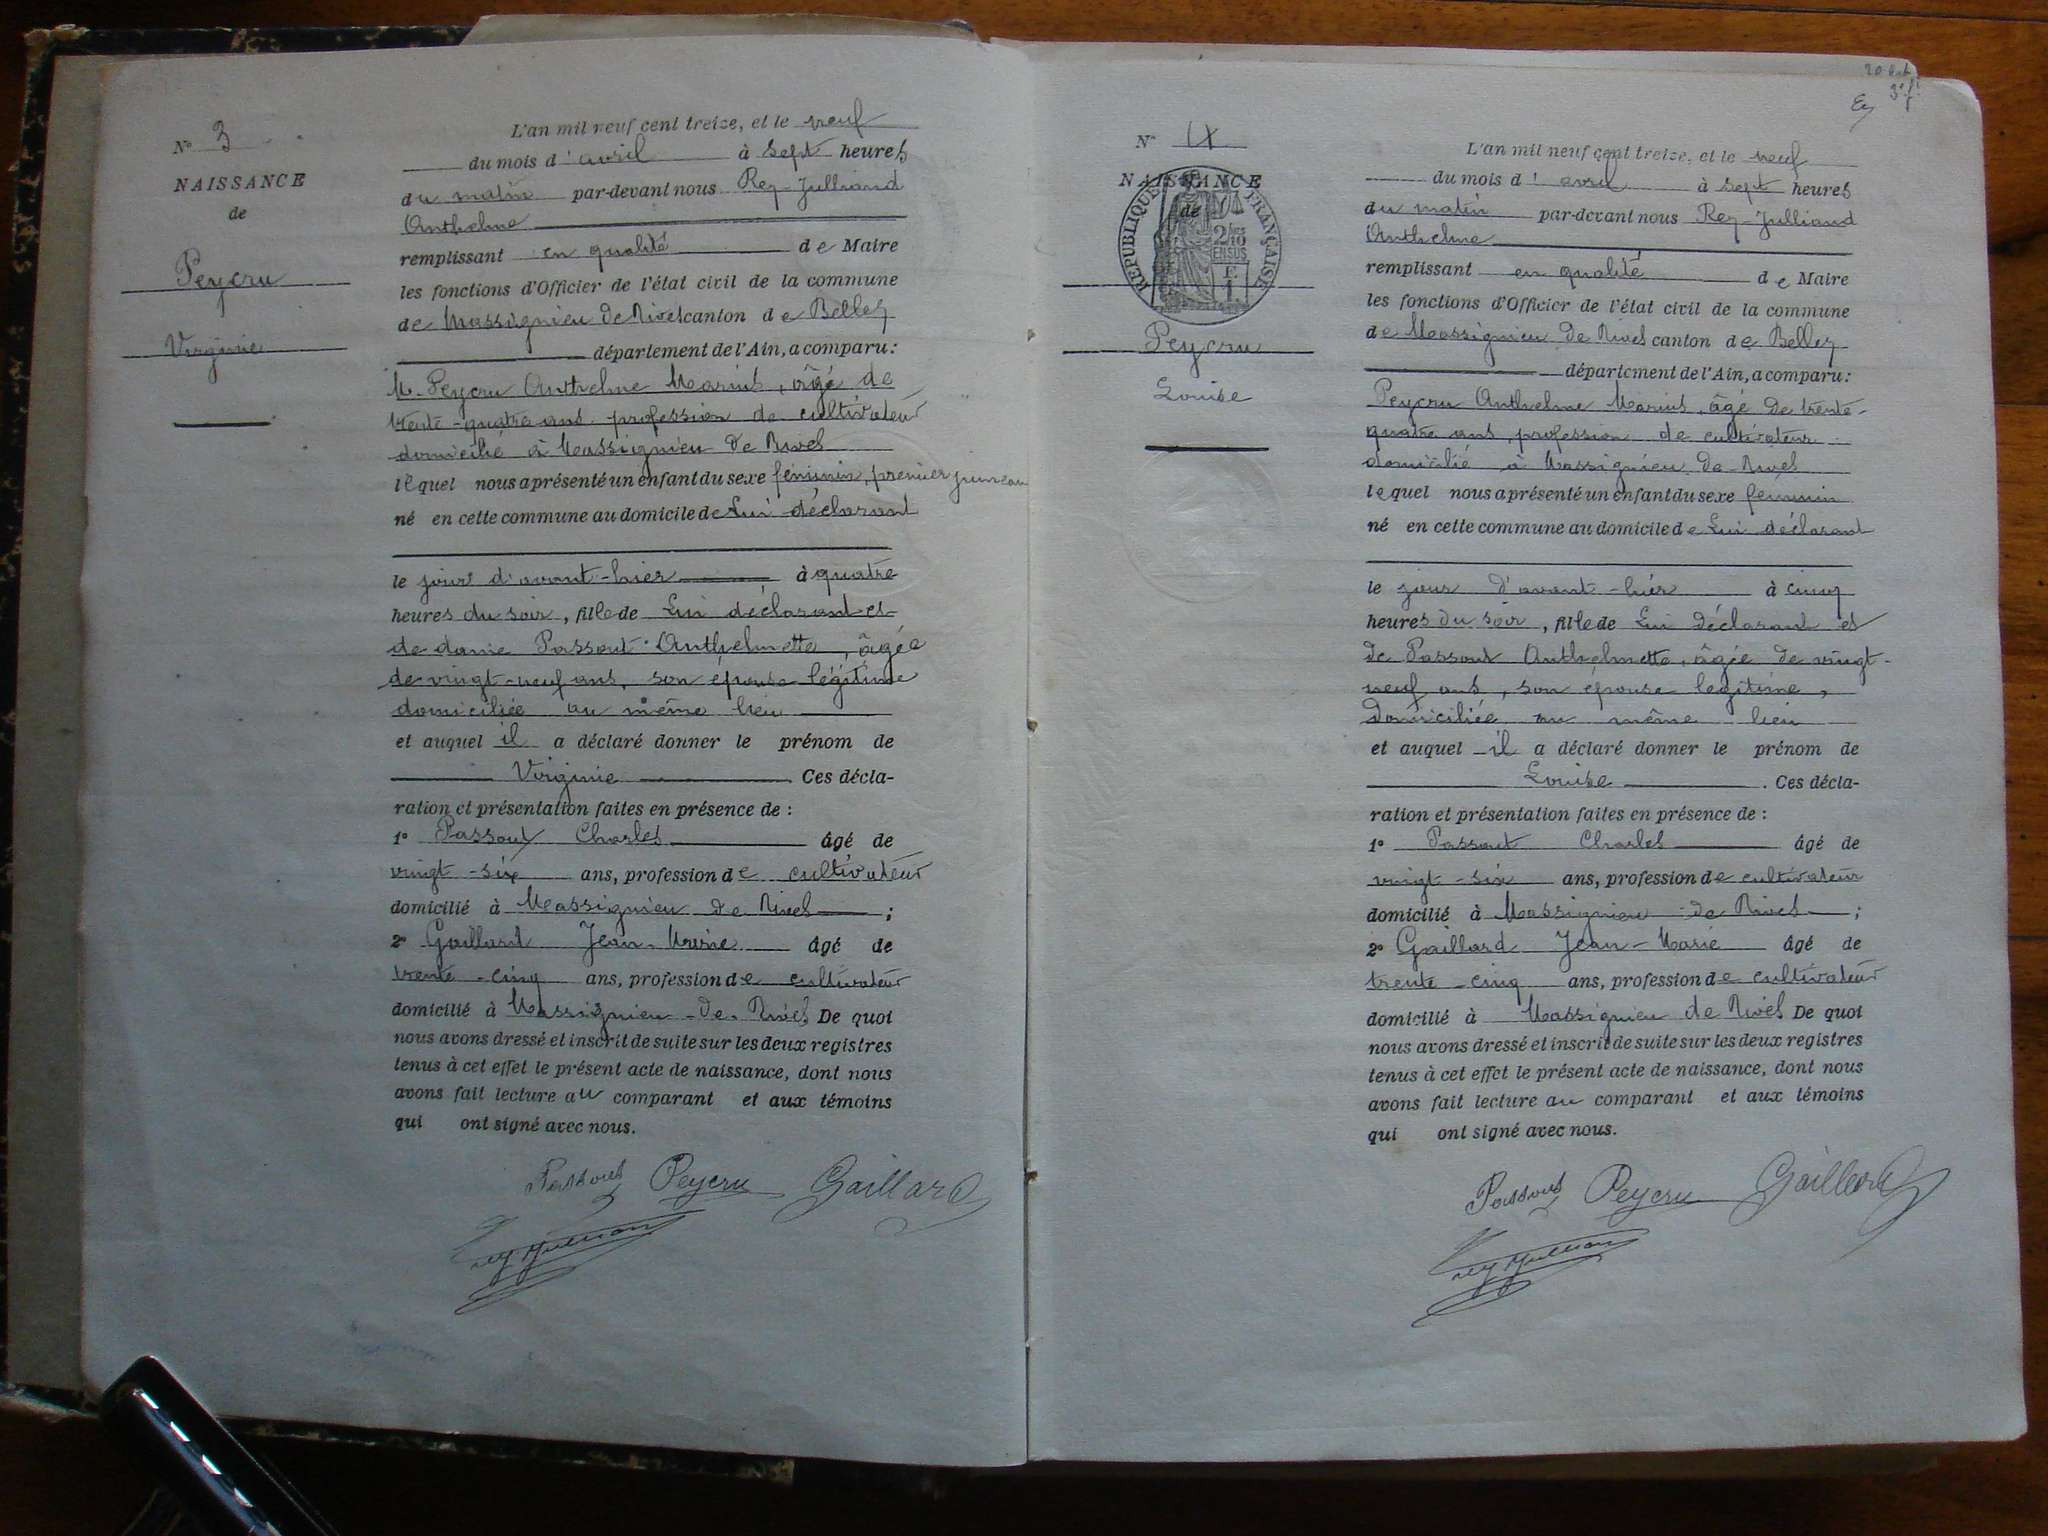 N° 3
NAISSANCE
de
Peycru
Virginie
L'an mil neuf cent treize, et le neuf
du mois d'avril à sept heures
du matin par-devant nous Rey-Julliand
Anthelme
remplissant en qualité de Maire
les fonctions d'Officier de l'état civil de la commune
de Massignieu de Rives canton de Belley
département de l'Ain, a comparu:
M. Peycru Anthelme Marius, âgé de
trente-quatre ans profession de cultivateur
domicilié à Massignieu de Rives
lequel nous a présenté un enfant du sexe féminin, premier jumeau
né en cette commune au domicile de Lui déclarant
le jour d'avant-hier à quatre
heures du soir, fille de Lui déclarant et
de dame Passout Anthelmette, âgée
de vingt-neuf ans, son épouse légitime
domiciliée au même lieu
et auquel il a déclaré donner le prénom de
Virginie Ces décla-
ration et présentation faites en présence de:
1° Passout Charles âgé de
vingt-six ans, profession de cultivateur
domicilié à Massignieu de Rives ;
2° Gaillard Jean-Marie âgé de
trente-cinq ans, profession de cultivateur
domicilié à Massignieu-de-Rives. De quoi
nous avons dressé et inscrit de suite sur les deux registres
tenus à cet effet le présent acte de naissance, dont nous
avons fait lecture au comparant et aux témoins
qui ont signé avec nous.
Passout Peycru Gaillard
Rey Julliand
3e f!
N° IX
NAISSANCE
de
RÉPUBLIQUE FRANÇAISE
2/10 EN SUS
Peycru
Louise
L'an mil neuf cent treize, et le neuf
du mois d'avril à sept heures
du matin par-devant nous Rey-Julliand
Anthelme
remplissant en qualité de Maire
les fonctions d'Officier de l'état civil de la commune
de Massignieu de Rives canton de Belley
département de l'Ain, a comparu:
Peycru Anthelme Marius, âgé de trente-
quatre ans, profession de cultivateur
domicilié à Massignieu de Rives
lequel nous a présenté un enfant du sexe féminin
né en cette commune au domicile de Lui déclarant
le jour d'avant-hier à cinq
heures du soir, fille de Lui déclarant et
de Passout Anthelmette, âgée de vingt-
neuf ans, son épouse légitime,
domiciliée au même lieu
et auquel il a déclaré donner le prénom de
Louise. Ces décla-
ration et présentation faites en présence de:
1° Passout Charles âgé de
vingt-six ans, profession de cultivateur
domicilié à Massignieu-de Rives ;
2° Gaillard Jean-Marie âgé de
trente-cinq ans, profession de cultivateur
domicilié à Massignieu de Rives De quoi
nous avons dressé et inscrit de suite sur les deux registres
tenus à cet effet le présent acte de naissance, dont nous
avons fait lecture au comparant et aux témoins
qui ont signé avec nous.
Passout Peycru Gaillard
Rey Julliand